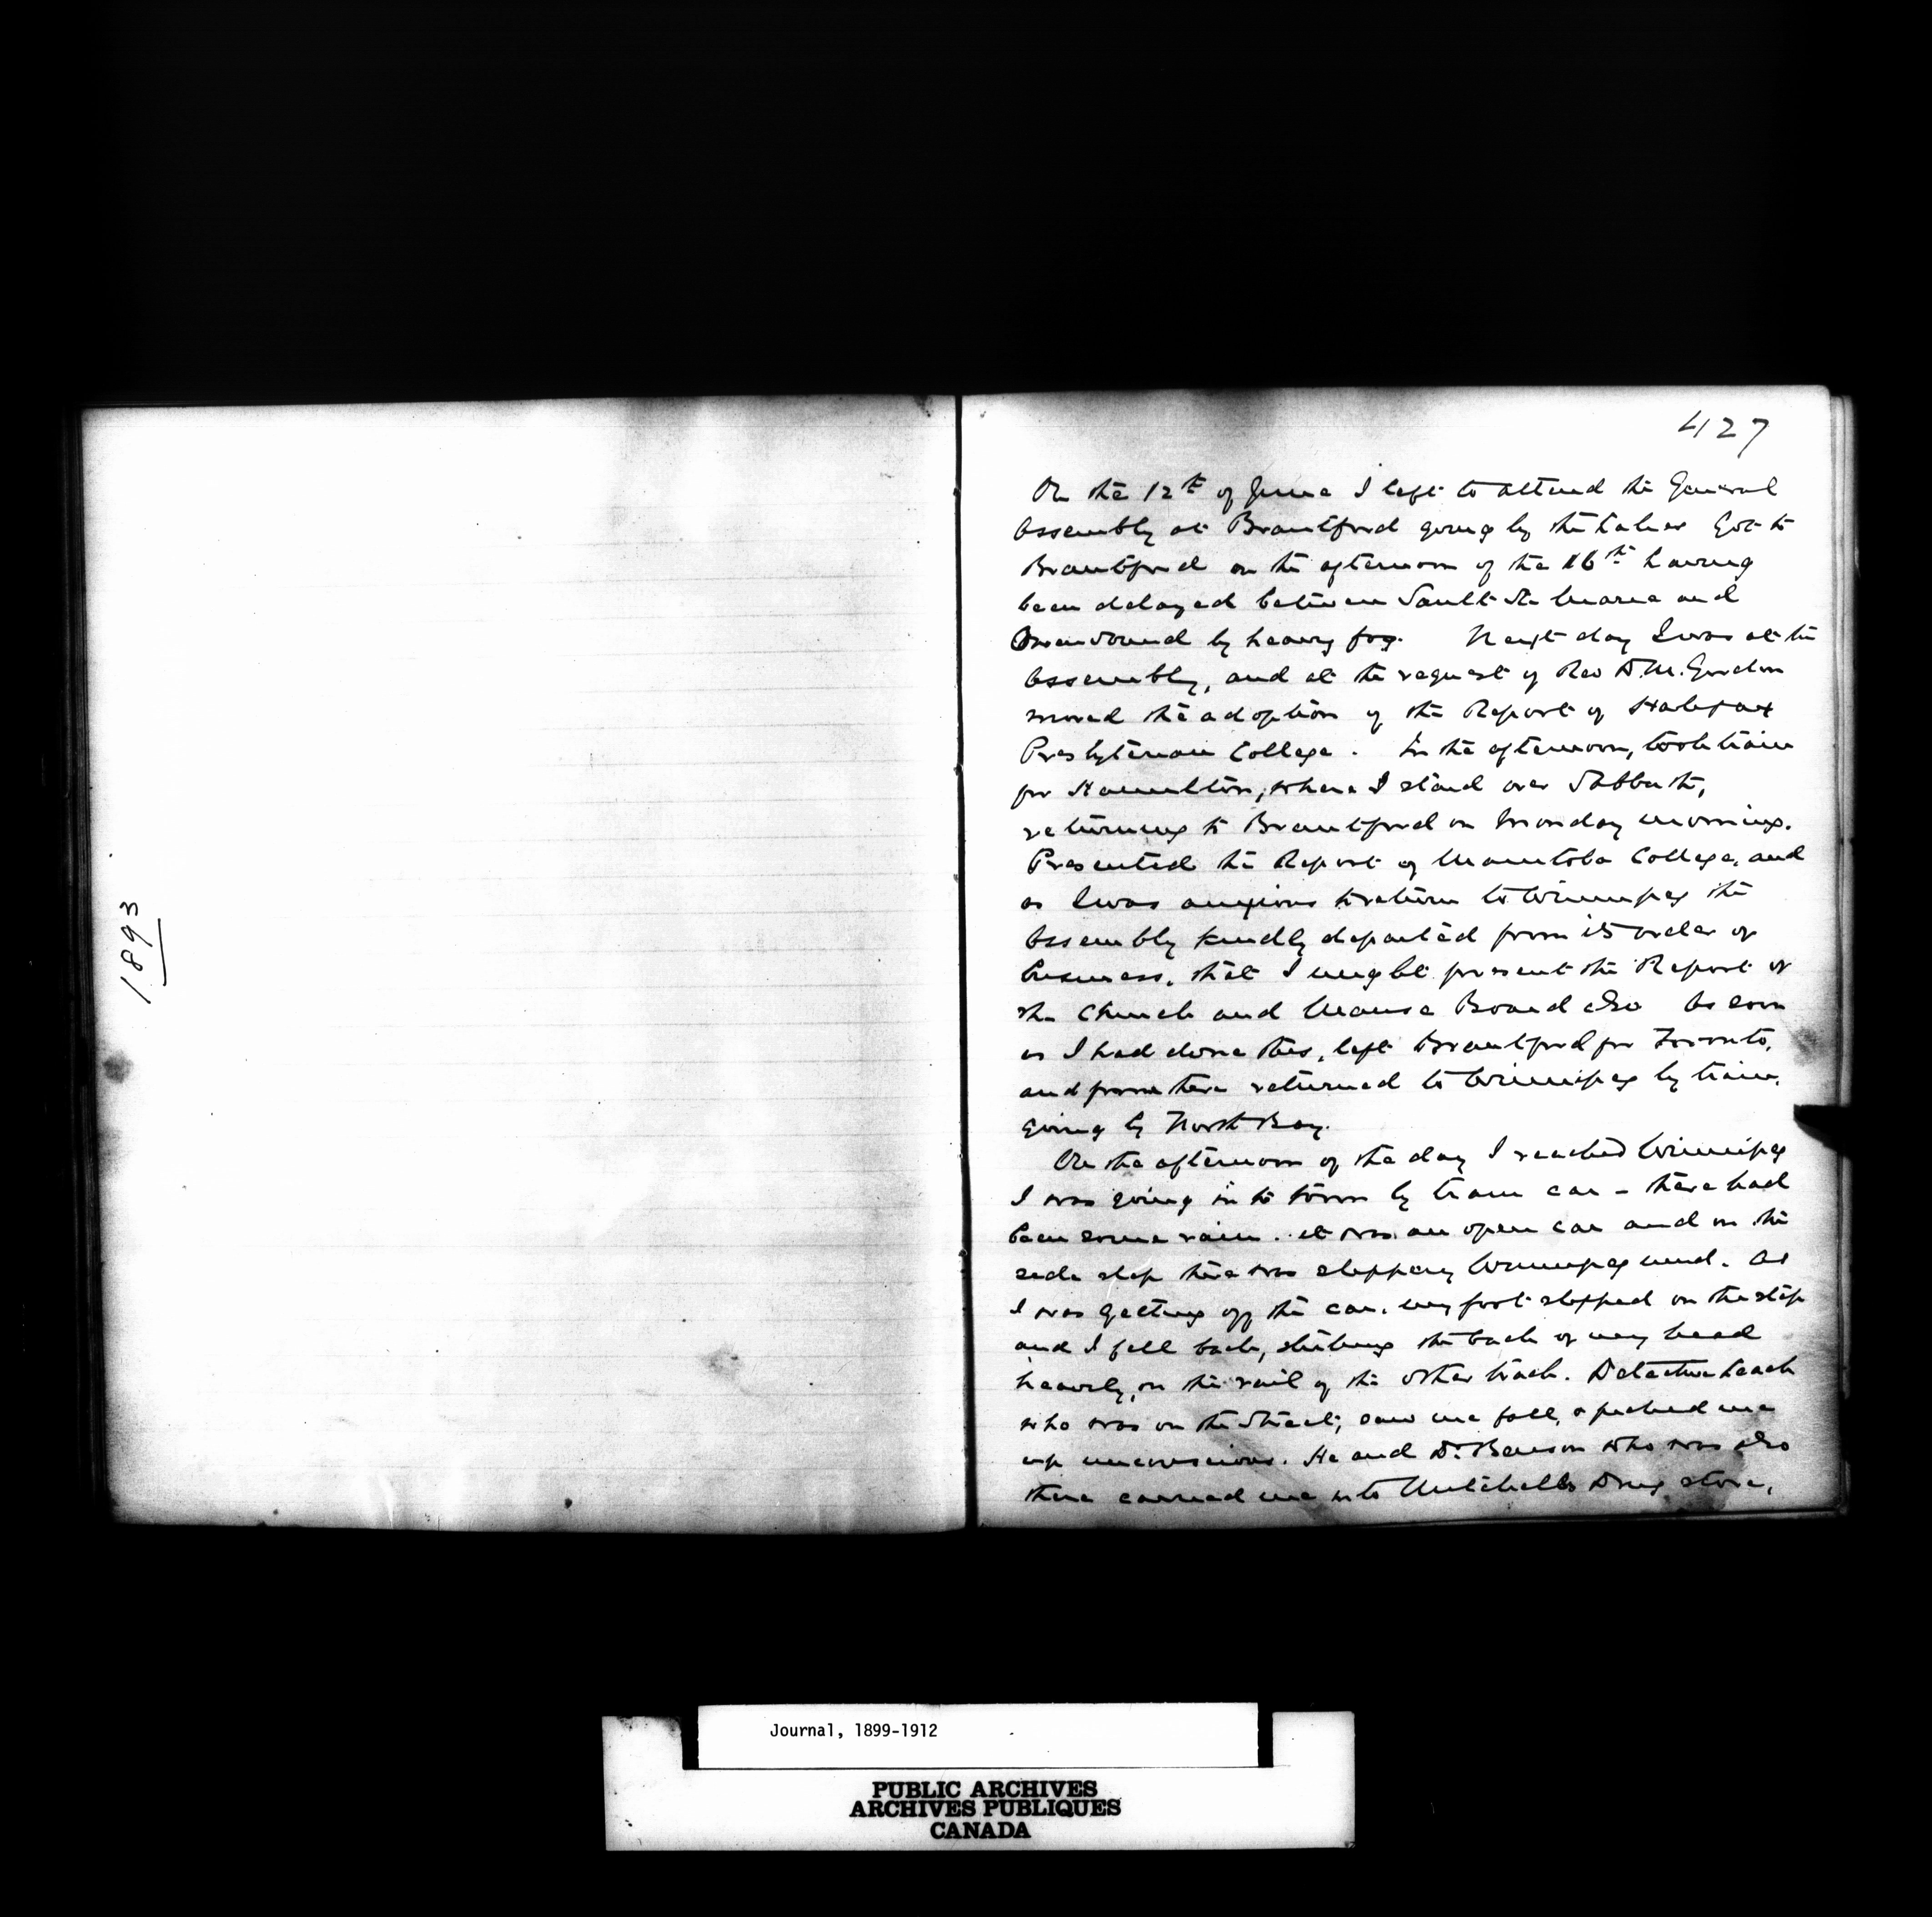 1893
427
On the 12th of June I left to attend the General
Assembly at Brantford going by the Lakes Got to
Brantford on the afternoon of the 16th having
been delayed between Sault Ste Marie and
Owen Sound by heavy fog. Next day I was at the
Assembly, and at the request of Rev D.M. Gordon
moved the adoption of the Report of Halifax
Presbyterian College. In the afternoon, took train
for Hamilton, where I staid over Sabbath,
returning to Brantford on Monday morning.
Presented the Report of Manitoba College, and
as I was anxious to return to Winnipeg the
Assembly kindly departed from its order of
business, that I might present the Report of
the Church and Manse Board also As soon
as I had done this, left Brantford for Toronto,
and from there returned to Winnipeg by train,
going by North Bay.
On the afternoon of the day I reached Winnipeg
I was going in to town by tram car - there had
been some rain. it was an open car and on the
side step there was slippery Winnipeg mud. As
I was getting off the car, my foot slipped on the step
and I fell back, striking the back of my head
heavily, on the rail of the other track. Detective Leach
who was on the Street, saw me fall, & picked me
up unconscious. He and Dr Benson who was also
there carried me into Mitchells Drug store,
Journal, 1899-1912
PUBLIC ARCHIVES
ARCHIVES PUBLIQUES
CANADA